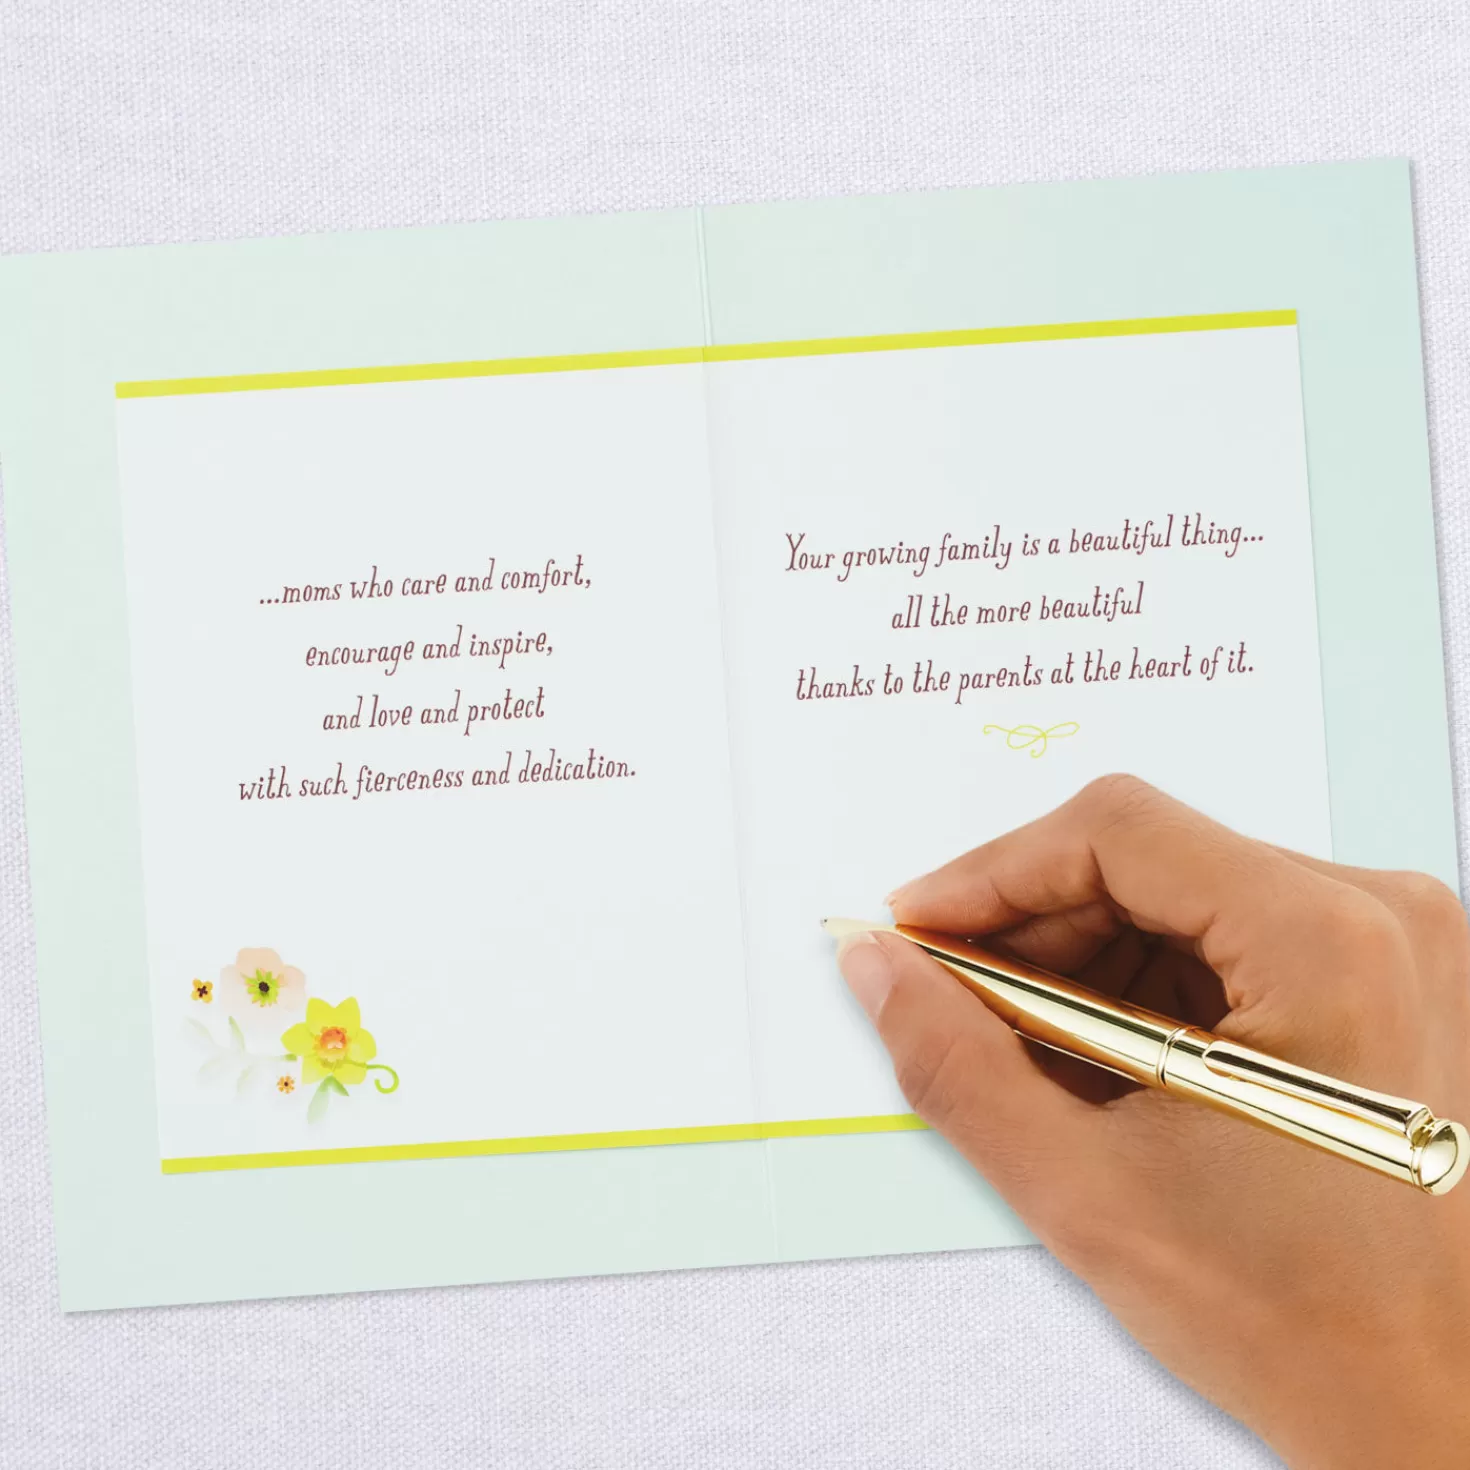 ...moms who care and comfort,
encourage and inspire,
and love and protect
with such fierceness and dedication.
Your growing family is a beautiful thing...
all the more beautiful
thanks to the parents at the heart of it.